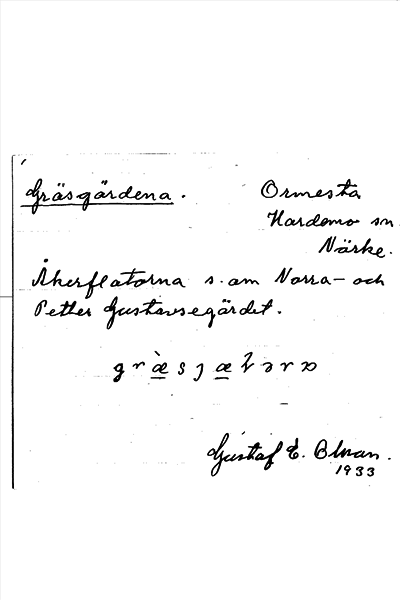 Gräsgärdena.
Ormesta
Hardemo sn.
Närke.
Åkerflatorna s. om Norra- och
Petter Gustavsegärdet.
Gustaf E.
1933